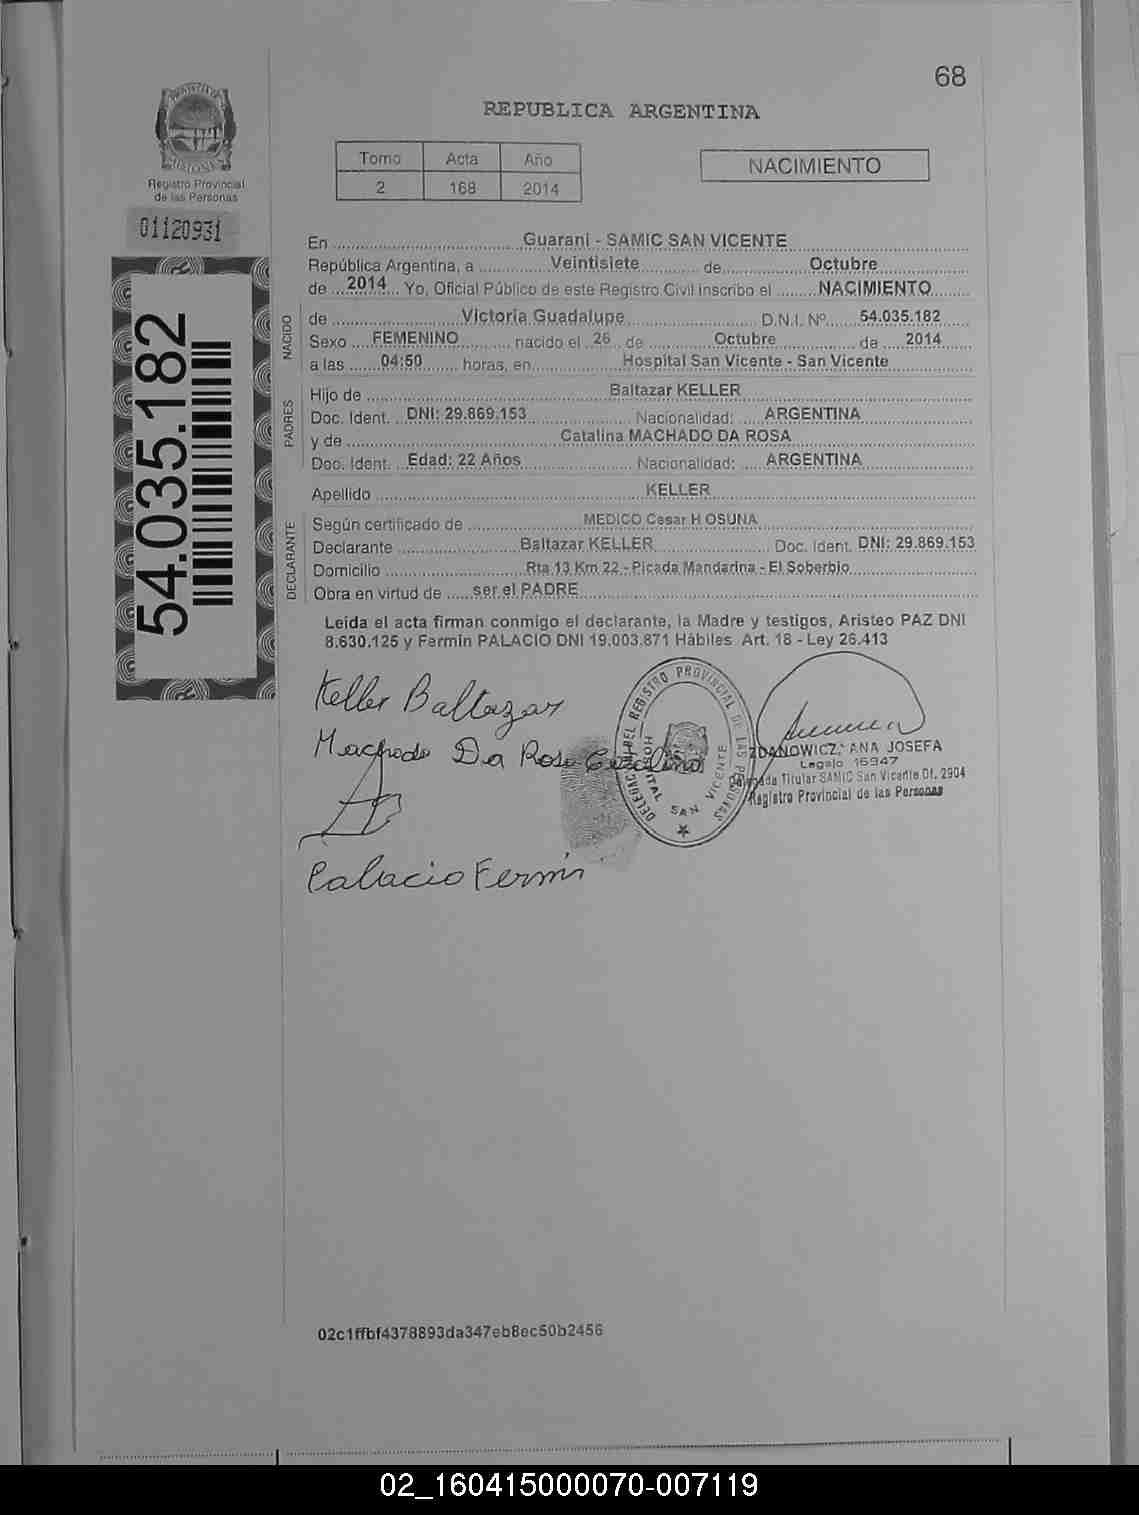 68
REPUBLICA ARGENTINA
Registro Provincial
de las Personas
01120931
Tomo Acta Año
2 168 2014
NACIMIENTO
54.035.182
En Guarani - SAMIC SAN VICENTE
República Argentina, a Veintisiete de Octubre
de 2014 Yo, Oficial Público de este Registro Civil inscribo el NACIMIENTO
NACIDO
de Victoria Guadalupe D.N.I. Nº 54.035.182
Sexo FEMENINO nacido el 26 de Octubre de 2014
a las 04:50 horas, en Hospital San Vicente - San Vicente
PADRES
Hijo de Baltazar KELLER
Doc. Ident. DNI: 29.869.153 Nacionalidad: ARGENTINA
y de Catalina MACHADO DA ROSA
Doc. Ident. Edad: 22 Años Nacionalidad: ARGENTINA
Apellido KELLER
DECLARANTE
Según certificado de MEDICO Cesar H OSUNA
Declarante Baltazar KELLER Doc. Ident. DNI: 29.869.153
Domicilio Rta 13 Km 22 - Picada Mandarina - El Soberbio
Obra en virtud de ser el PADRE
Leida el acta firman conmigo el declarante, la Madre y testigos, Aristeo PAZ DNI
8.630.125 y Fermin PALACIO DNI 19.003.871 Hábiles Art. 18 - Ley 26.413
Keller Baltazar
Machado Da Rosa Catalina
Palacio Fermin
DELEGACION DEL REGISTRO PROVINCIAL DE LAS PERSONAS
HOSPITAL SAN VICENTE
ZDANOWICZ, ANA JOSEFA
Legajo 15947
Delegada Titular SAMIC San Vicente Of. 2904
Registro Provincial de las Personas
02c1ffbf4378893da347eb8ec50b2456
02_160415000070-007119